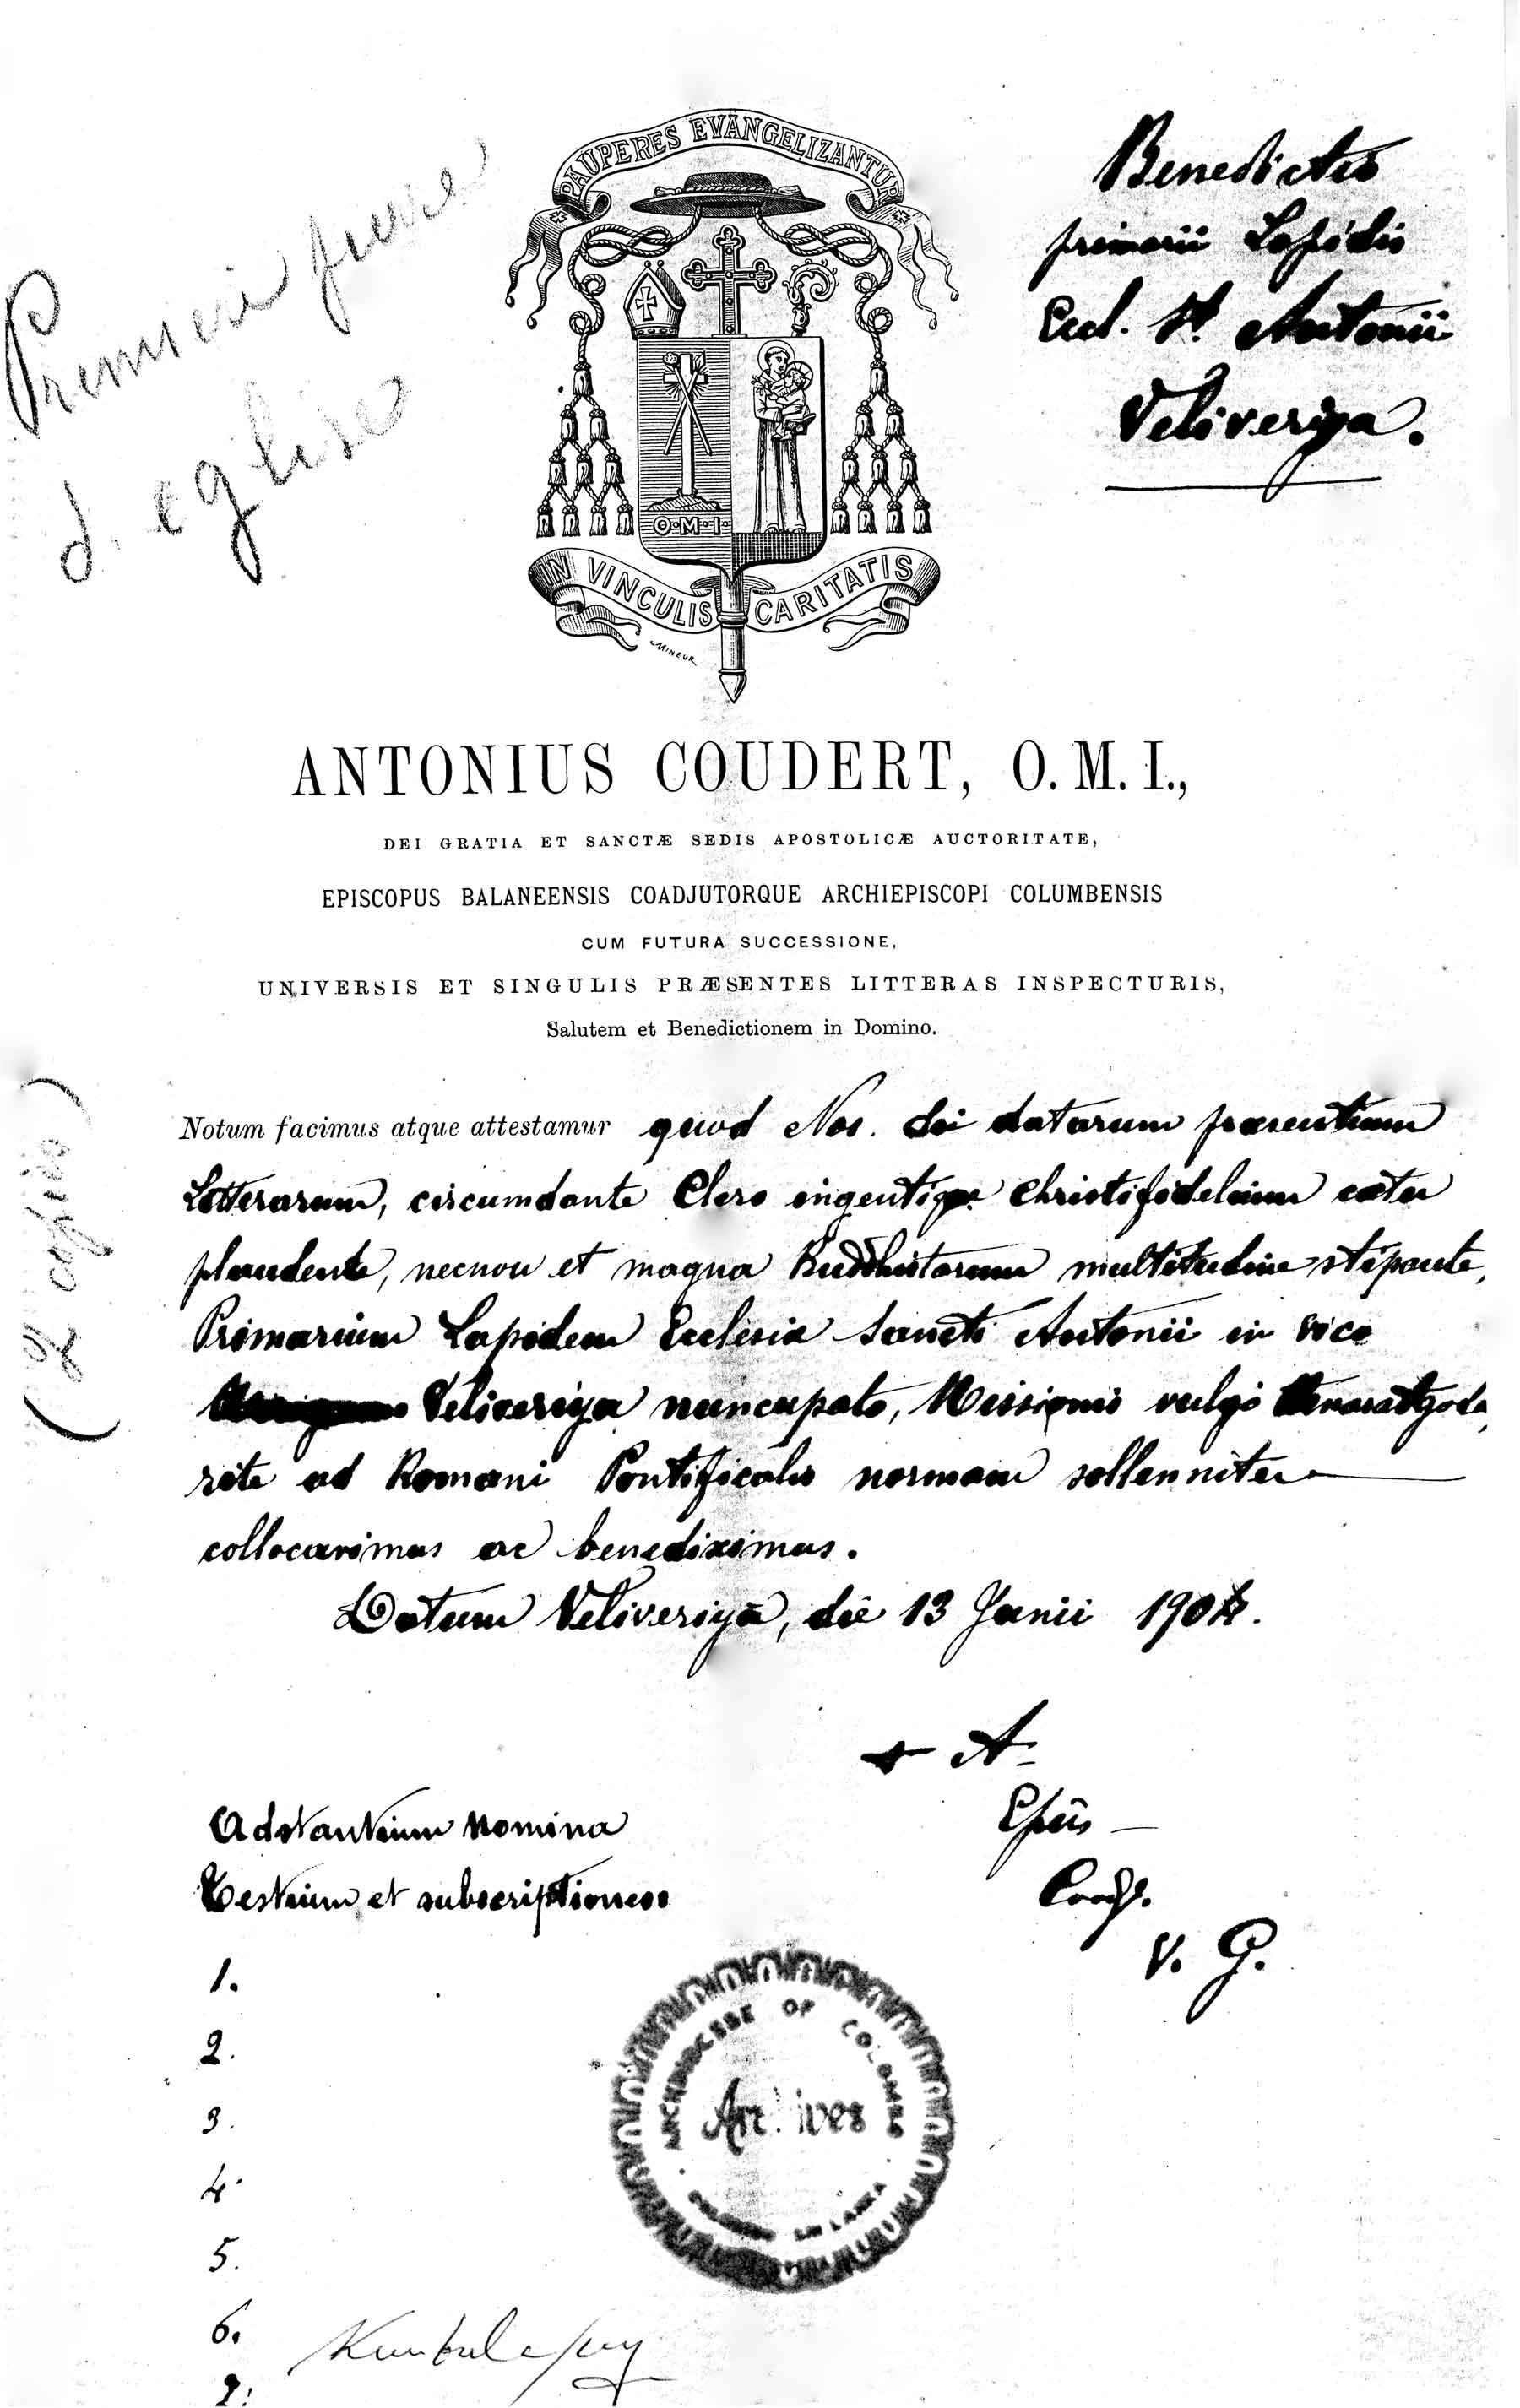 PAUPERES EVANGELIZANTUR
Benedictio
primarii Lapidis
Eccl. St. Antonii
Veliveriya.
d'église
O·M·I·
IN VINCULIS CARITATIS
MINEUR
ANTONIUS COUDERT, O. M. I.,
DEI GRATIA ET SANCTÆ SEDIS APOSTOLICÆ AUCTORITATE,
EPISCOPUS BALANEENSIS COADJUTORQUE ARCHIEPISCOPI COLUMBENSIS
CUM FUTURA SUCCESSIONE,
UNIVERSIS ET SINGULIS PRÆSENTES LITTERAS INSPECTURIS,
Salutem et Benedictionem in Domino.
Notum facimus atque attestamur quod Nos. die datarum præsentium
Litterarum, circumdante Clero ingentique Christifidelium cœtu
plaudente, necnon et magna Buddhistarum multitudine stipante,
Primarium Lapidem Ecclesiæ Sancti Antonii in vico
Veliveriya nuncupato, Missionis vulgo
rite ad Romani Pontificalis normam sollenniter
collocavimus ac benediximus.
Datum Veliveriya, die 13 Junii 190
(2 copies)
+ A
Epûs
Coadj.
V. G.
Adstantium nomina
Testium et subscriptiones
1.
2.
3.
4.
5.
6.
7.
ARCHDIOCESE OF COLOMBO
Archives
SRI LANKA